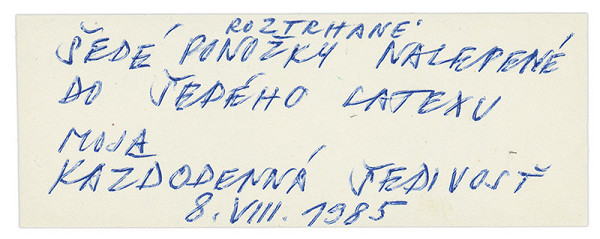 ROZTRHANÉ
ŠEDÉ PONOŽKY NALEPENÉ
DO ŠEDÉHO LATEXU
MOJA
KAZDODENNÁ ŠEDIVOSŤ
8. VIII. 1985